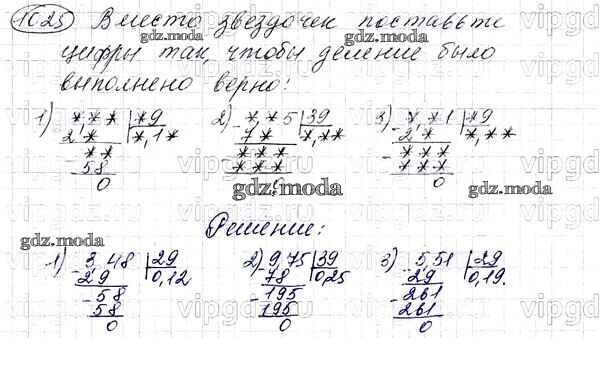 1025 Вместо звездочек поставьте
цифры так, чтобы деление было
выполнено верно:
1) *,** | *9
2* | *,1*
- **
58
0
2) *,*5 | 39
7* | *,**
- ***
***
0
3) *,*1 | *9
2* | *,**
- ***
***
0
Решение:
1) 3,48 | 29
29 | 0,12
- 58
58
0
2) 9,75 | 39
78 | 0,25
- 195
195
0
3) 5,51 | 29
29 | 0,19.
- 261
261
0
gdz.moda
gdz.moda
gdz.moda
gdz.moda
gdz.moda
gdz.moda
gdz.moda
gdz.moda
gdz.moda
vipgdz